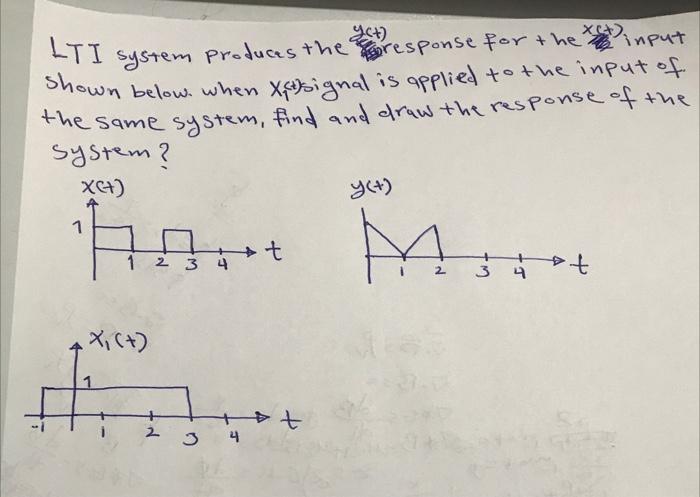 LTI system produces the y(t) response for the x(t) input
shown below. when x₁(t) signal is applied to the input of
the same system, find and draw the response of the
system?
x(t)
y(t)
1
1 2 3 4 t
1 2 3 4 t
x₁(t)
1
-1 1 2 3 4 t